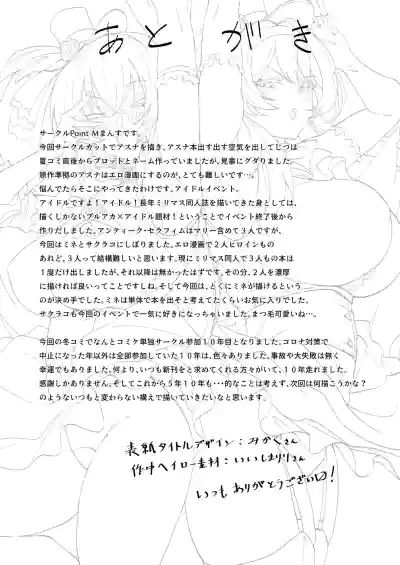 あとがき
サークルPoint Mまんすです。
今回サークルカットでアスナを描き、アスナ本出す出す空気を出してじつは
夏コミ直後からプロットとネーム作っていましたが、見事にグダりました。
原作準拠のアスナはエロ漫画にするのが、とても難しいです…。
悩んでたらそこにやってきたわけです。アイドルイベント。
アイドルですよ！アイドル！長年ミリマス同人誌を描いてきた身としては、
描くしかないブルアカ×アイドル題材！ということでイベント終了後から
作りだしました。アンティーク・セラフィムはマリー含めて3人ですが、
今回はミネとサクラコにしぼりました。エロ漫画で2人ヒロインもの
あれど、3人って結構難しいと思います。現にミリマス同人で3人もの本は
1度だけ出しましたが、それ以降は無かったはずです。その分、2人を濃厚
に描ければ良いってことですしね。そして今回は、とくにミネが描けるという
のが決め手でした。ミネは単体で本を出そと考えてたくらいお気に入りでした。
サクラコも今回のイベントで一気に好きになっちゃいました。まつ毛可愛いね…。
今回の冬コミでなんとコミケ単独サークル参加10年目となりました。コロナ対策で
中止になった年以外は全部参加していた10年は、色々ありました。事故や大失敗は無く
幸運でもありました。何より、いつも新刊を求めてくれる方々がいて、10年走れました。
感謝しかありません。そしてこれから5年10年も・・的なことは考えず、次回は何描こうかな？
のようないつもと変わらない構えで描いていきたいなと思います。
表紙タイトルデザイン：みかくさん
作中ヘイロー素材：いいしまりりさん
いつもありがとうございい！